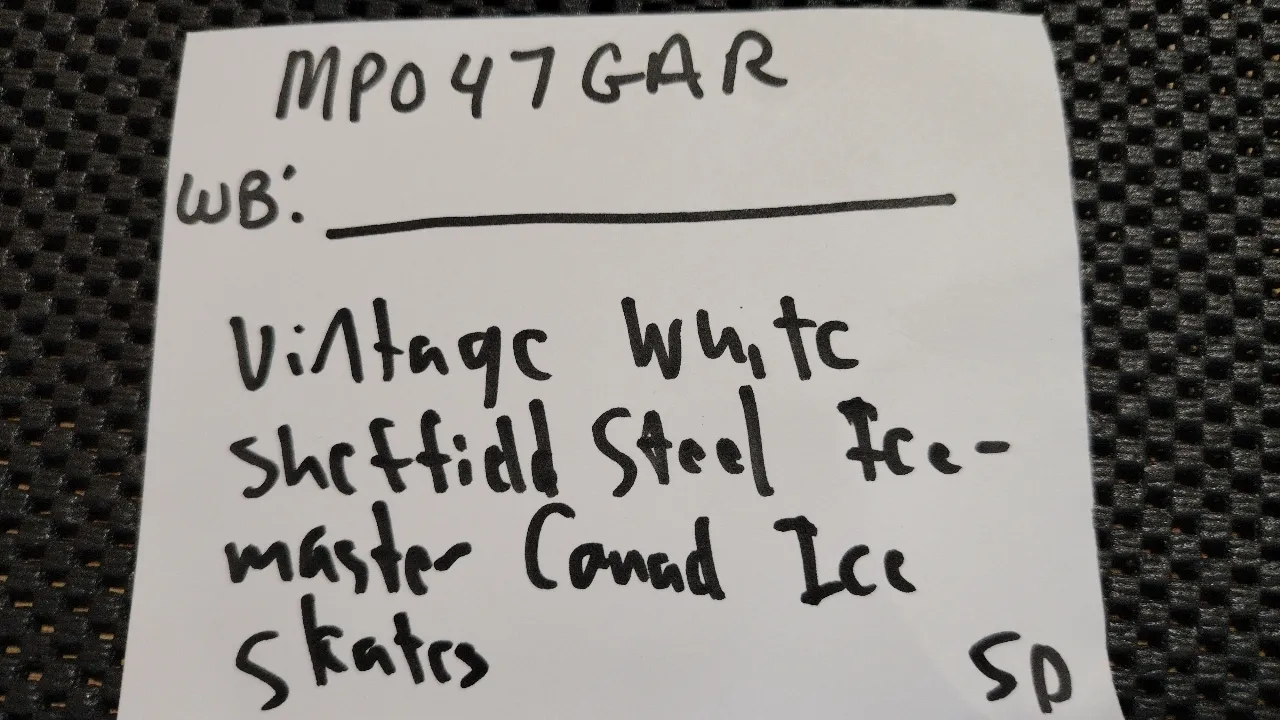 MP047GAR
WB:
Vintage White
Sheffield Steel Ice-
master Canad Ice
Skates
SD